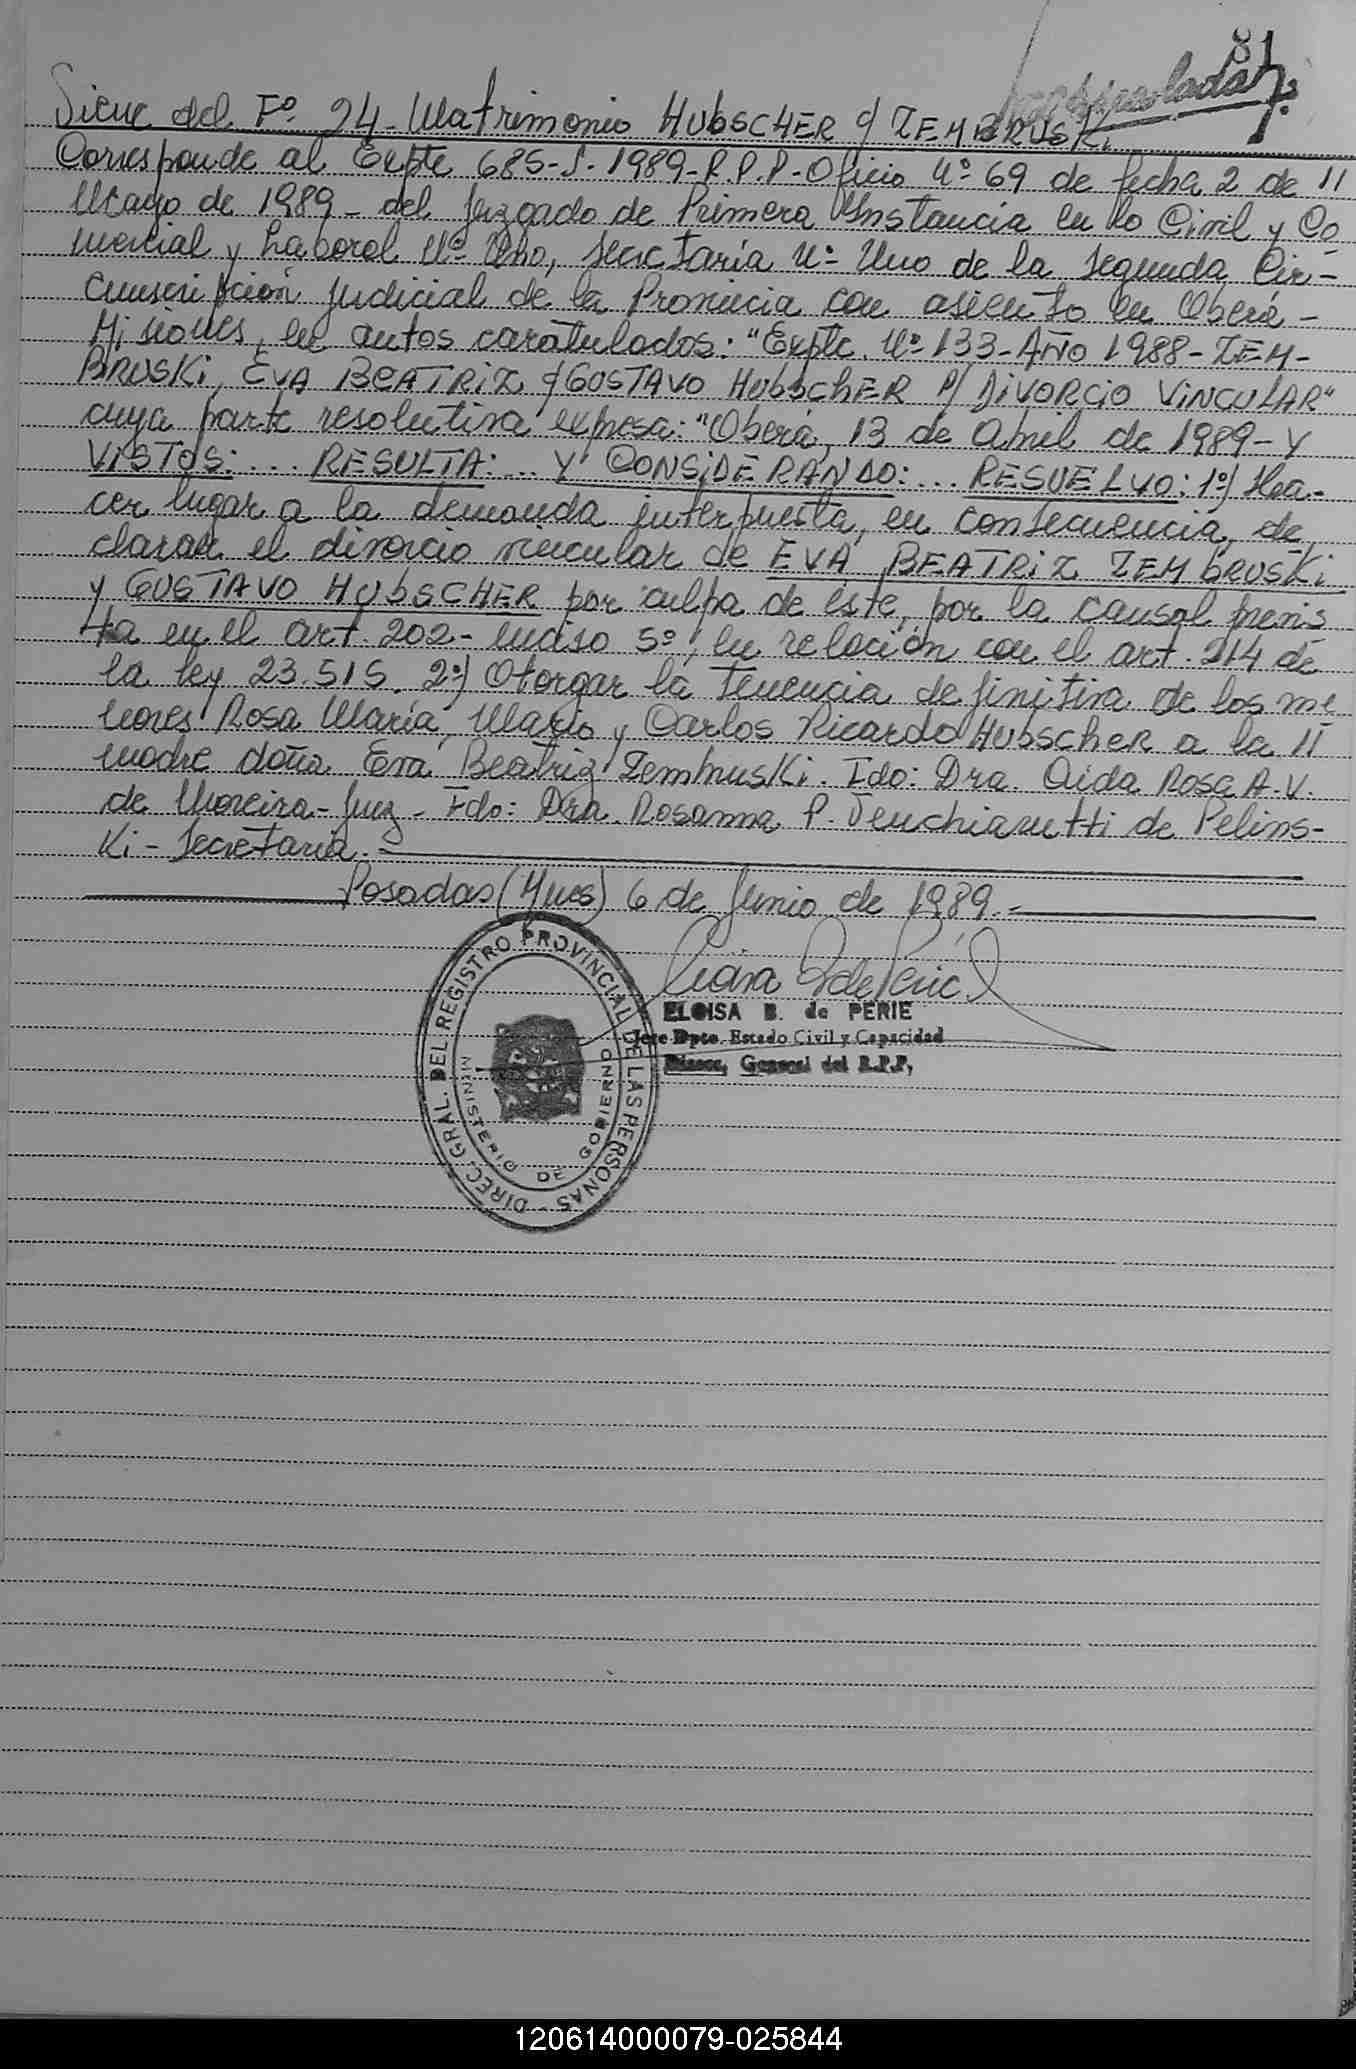 81
Sigue del Fº 24 - Matrimonio HUBSCHER c/ ZEMBRUSKI
Corresponde al Expte 685-S-1989-R.P.P-Oficio Nº 69 de fecha 2 de //
Mayo de 1989 - del Juzgado de Primera Instancia en lo Civil y Co
mercial y Laboral Nº Uno, Secretaría Nº Uno de la Segunda Cir-
cunscripción Judicial de la Provincia con asiento en Oberá -
Misiones, en autos caratulados: "Expte. Nº 133-Año 1988-ZEM-
BRUSKI, EVA BEATRIZ c/GUSTAVO HUBSCHER P/ DIVORCIO VINCULAR"
cuya parte resolutiva expresa: "Oberá, 13 de Abril de 1989 - Y
VISTOS: ... RESULTA: ... Y CONSIDERANDO: ... RESUELVO: 1º) Ha-
cer lugar a la demanda interpuesta, en consecuencia, de
clarar el divorcio vincular de EVA BEATRIZ ZEMBRUSKI
y GUSTAVO HUBSCHER por culpa de éste, por la causal previs
ta en el art. 202- inciso 5º, en relación con el art. 214 de
la ley 23.515. 2º) Otorgar la tenencia definitiva de los me
nores Rosa María, Mario y Carlos Ricardo Hubscher a la //
madre doña Eva Beatriz Zembruski. Fdo: Dra. Aida Rosa A.V.
de Moreira - Juez - Fdo: Dra. Rosanna P. Venchiarutti de Pelins-
Ki - Secretaria. -
Posadas (Mnes) 6 de Junio de 1989. -
DIREC. GRAL. DEL REGISTRO PROVINCIAL DE LAS PERSONAS -
MINISTERIO DE GOBIERNO
ELOISA B. de PERIE
Jefe Dpto. Estado Civil y Capacidad
Direcc. General del R.P.P.
120614000079-025844